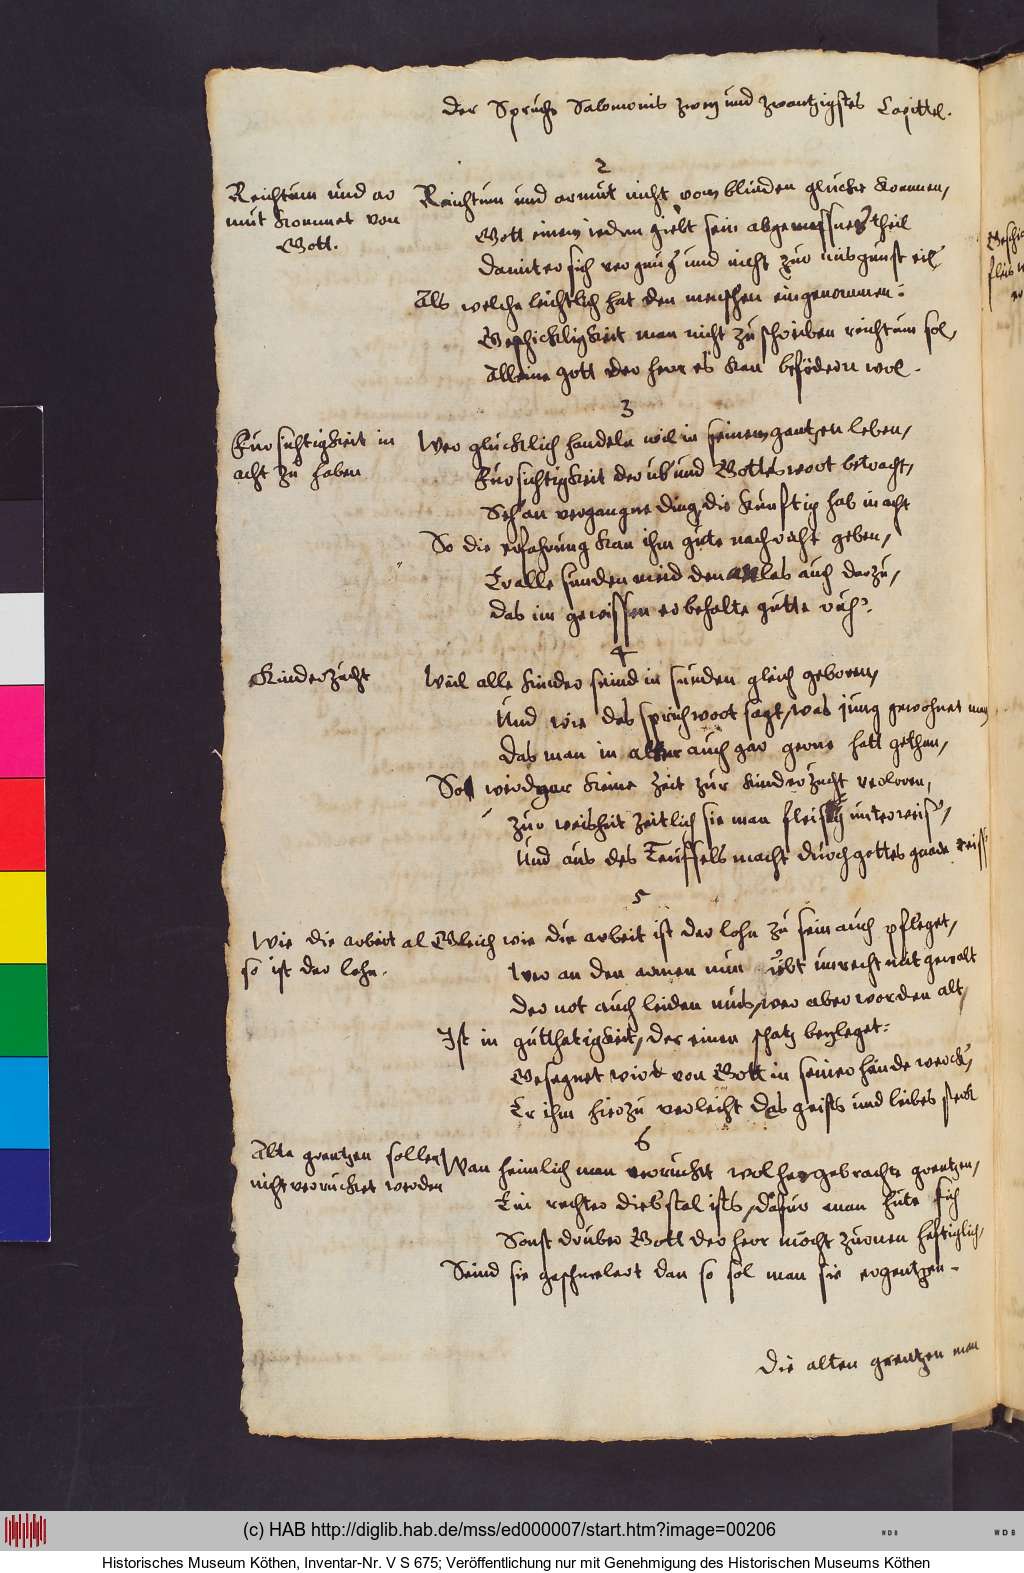 Der Spruche Salomonis zwey und zwantzigstes Capittel.
2
Reichtum und ar
mut kommet von
Gott.
Reichtum und armut nicht vom blinden glucke kommen,
Gott einem ieden giebt sein abgemessnes theil
damit er sich vergnug und nicht zur misgunst eil
Als welche leichtlich hat den menschen eingenommen:
Geschickligkeit man nicht zu schreiben reichtum sol,
Alleine gott der herr es kan befödern wol.
3
Fursichtigkeit in
acht zu haben
Wer glucklich handeln wil in seinem gantzen leben,
Fursichtigkeit der ub und Gottes wort betracht,
Seh an vergangne ding, die kunftig hab in acht
So die erfahrung kan ihm gute nachricht geben,
Er alle sunden meid den anlas auch darzu,
das im gewissen er behalte gutte ruh.
4
Kinderzucht
Weil alle kinder seind in sunden gleich geboren,
Und wie das sprichwort sagt, was jung gewohnet man
das man in alter auch gar gerne hatt gethan,
So wird gar keine zeit zur kinderzucht verloren,
zur weisheit zeitlich sie man fleisig unterweis,
Und aus des Teuffels macht durch gottes gnade reiss
5
Wie die arbeit al
so ist der lohn.
Gleich wie die arbeit ist der lohn zu sein auch pfleget,
Wer an den armen nun übt unrecht mit gewalt
der not auch leiden mus, wer aber worden alt,
Ist in gutthatigkeit, der einen schatz beyleget:
Gesegnet wird von Gott in seiner hände werck,
Er ihm hierzu verleiht des geists und leibes sterk
6
Alte grentzen sollen
nicht verrucket werden
Wan heimlich man verruckt wol hergebrachte grentzen,
Ein rechter diebstal ists, dafur man hute sich
Sonst druber Gott der herr möcht zurnen heftiglich,
Seind sie geschmelert dan so sol man sie ergentzen.
Die alten grentzen man
(c) HAB http://diglib.hab.de/mss/ed000007/start.htm?image=00206
WDB
WDB
Historisches Museum Köthen, Inventar-Nr. V S 675; Veröffentlichung nur mit Genehmigung des Historischen Museums Köthen